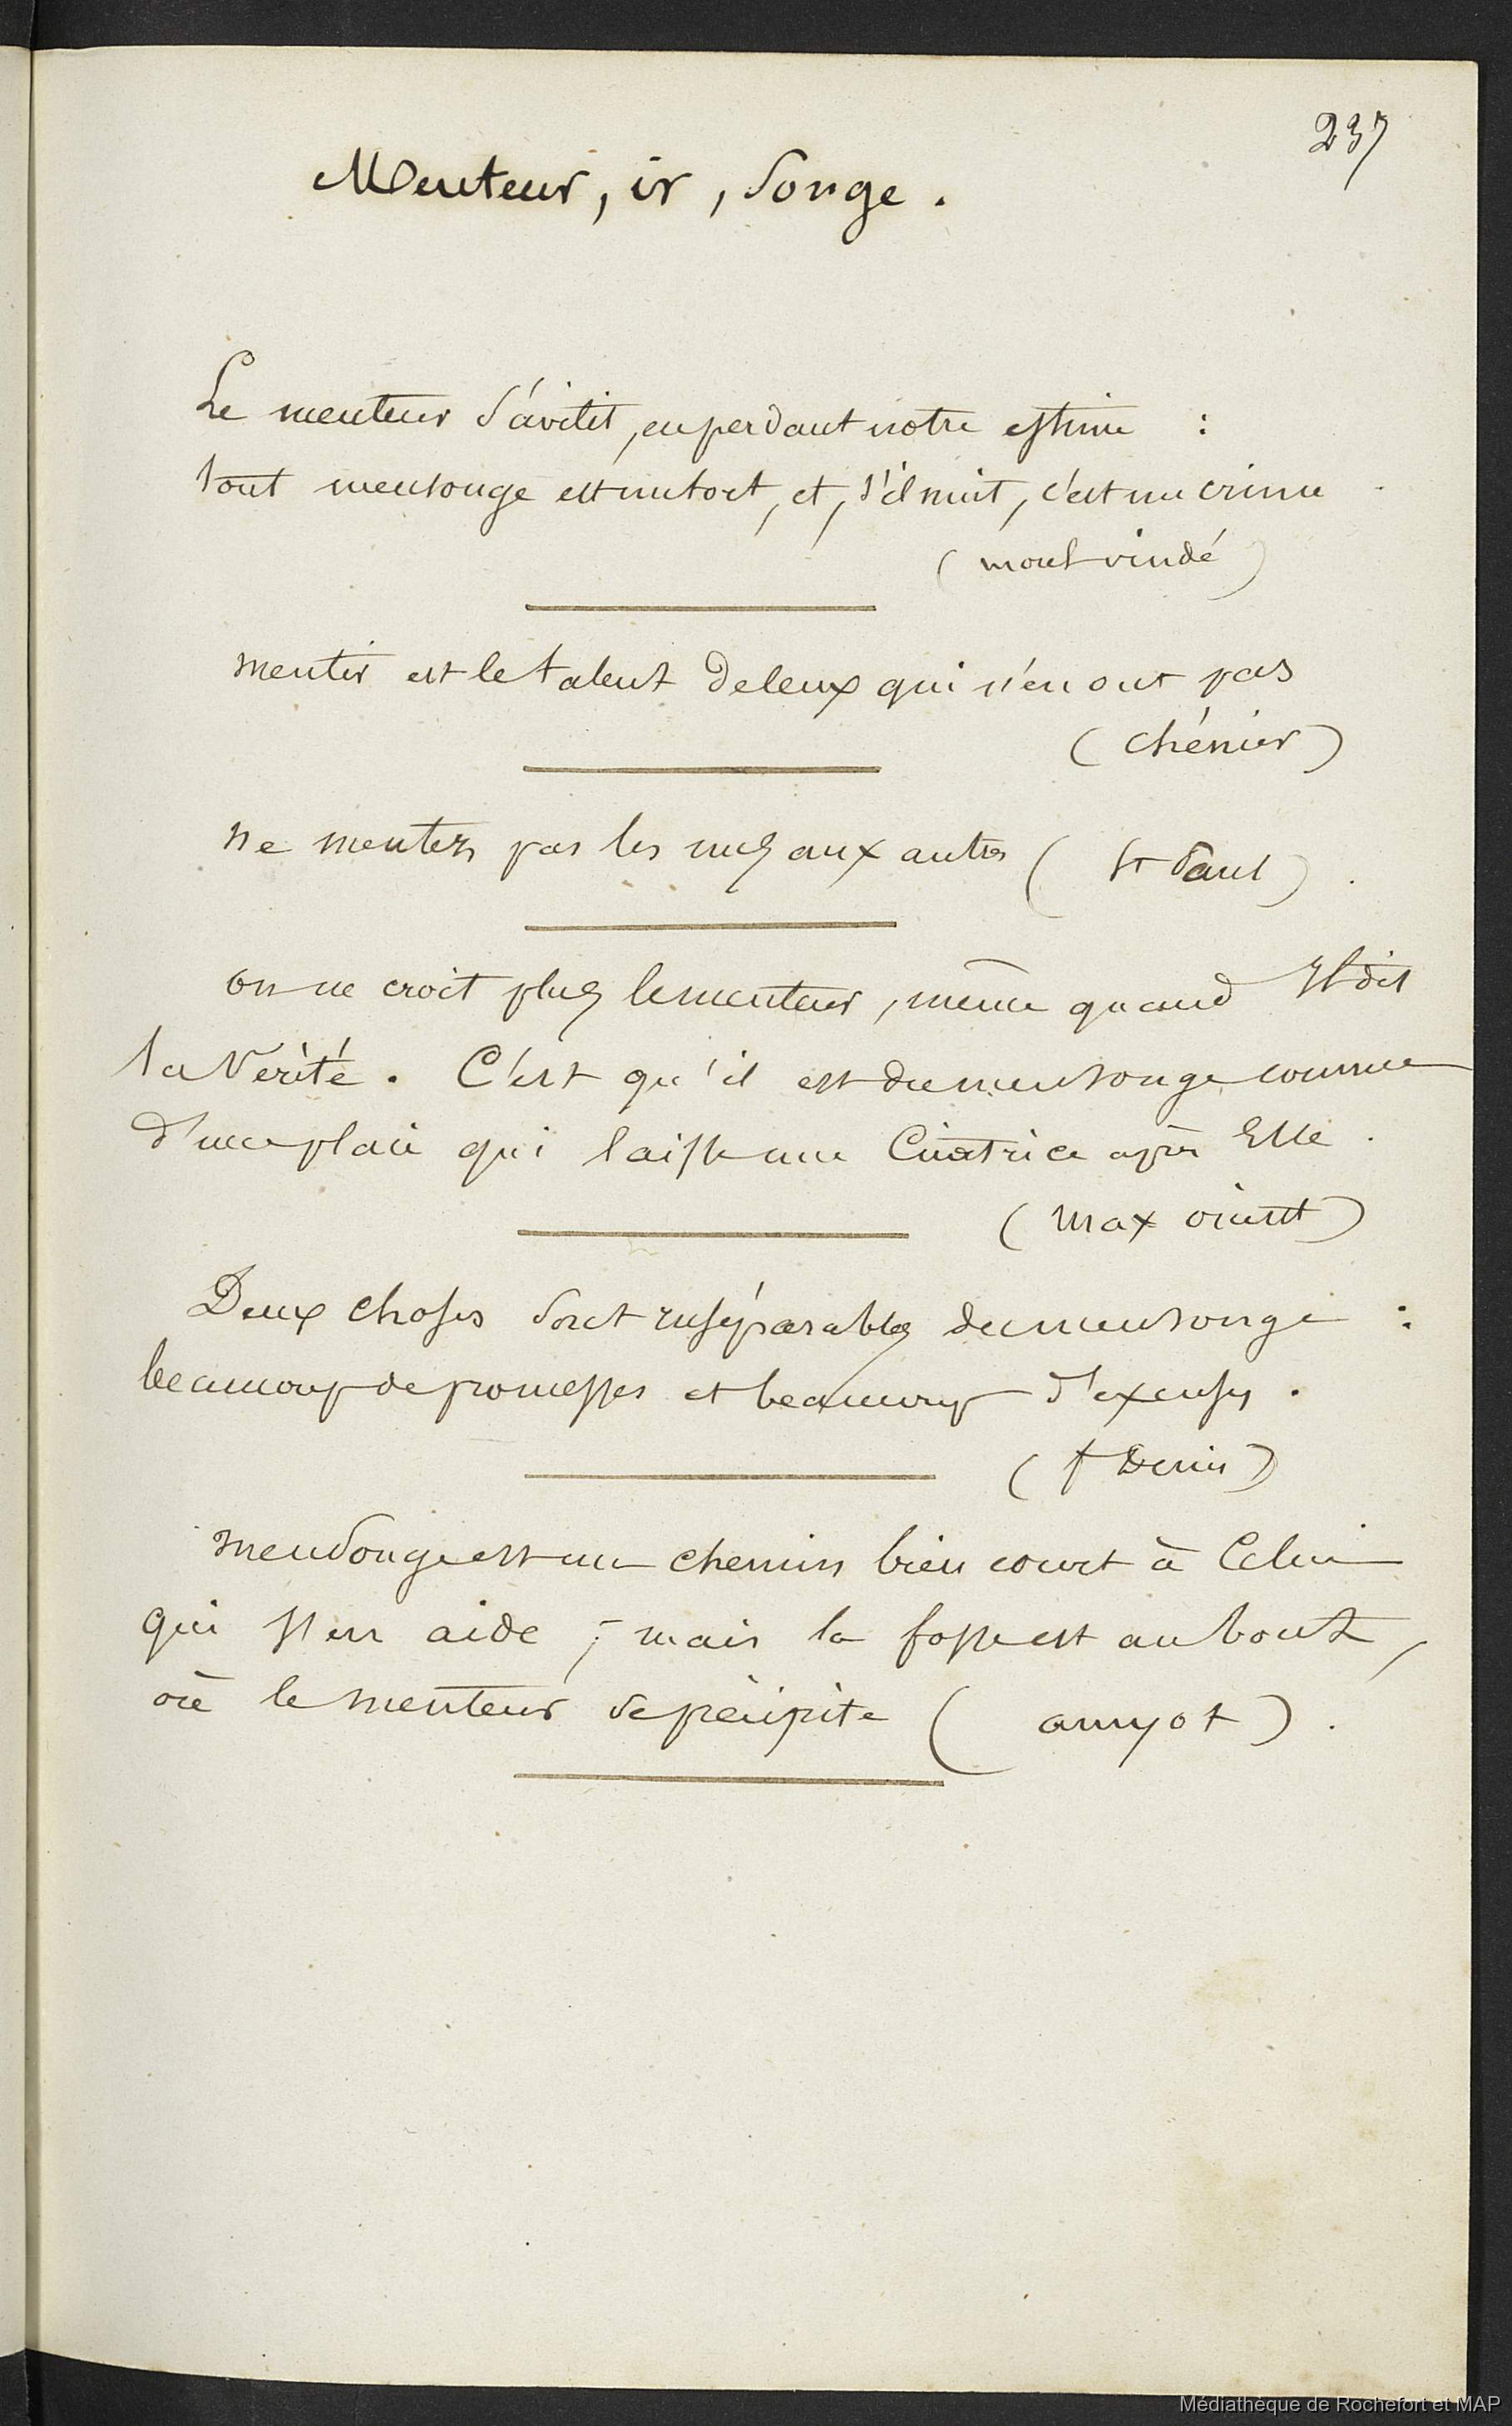 237
Menteur, ir, songe.
Le menteur s'avilit, en perdant notre estime :
tout mensonge est un tort, et, s'il nuit, c'est un crime.
(montvindé)
mentir est le talent de ceux qui n'en ont pas
(chénier)
ne mentez pas les uns aux autres (St Paul).
on ne croit plus le menteur, même quand Il dit
la Vérité. C'est qu'il est du mensonge comme
d'une plaie qui laisse une Cicatrice après Elle.
(max orient)
Deux choses sont inséparables du mensonge :
beaucoup de promesses et beaucoup d'excuses.
(f Denis)
mensonge est un chemin bien court à Celui
qui s'en aide ; mais la fosse est au bout,
où le menteur se précipite (amyot).
Médiathèque de Rochefort et MAP